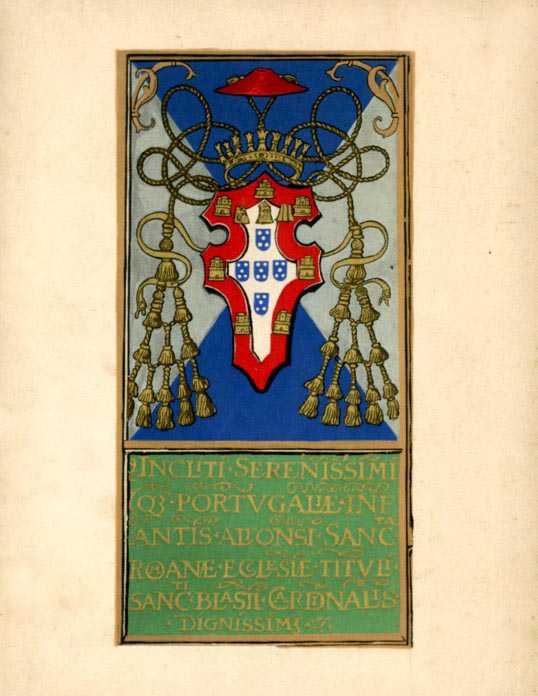 INCLITI·SERENISSIMI
Q3·PORTVGALIÆ·INF
ANTIS·ALFONSI·SANCTÆ·
ROMANÆ·ECLESIE·TITVLI·
SANCTI·BLASII·CARDINALIS
DIGNISSIMI